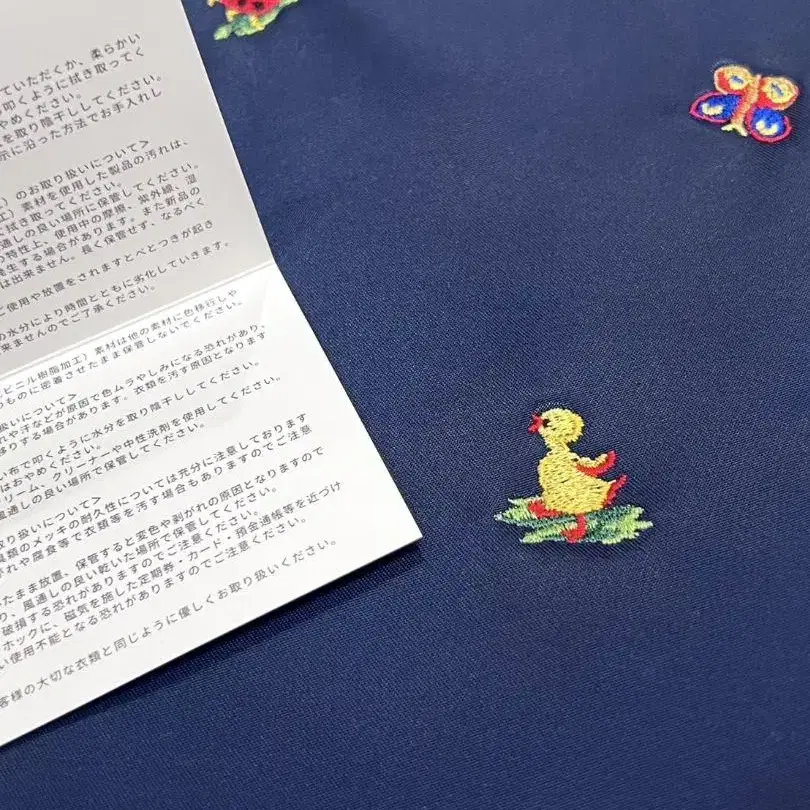 ていただくか、柔らかい
叩くように拭き取ってく
やめください。
を取り陰干ししてください。
示に沿った方法でお手入れし
）のお取り扱いについて>
工）素材を使用した製品の汚れは、
に拭き取ってください。
通しの良い場所に保管してください。
の特性上、使用中の摩擦、紫外線、湿
発生する場合があります。また新品の
は出来ません。長く保管せず、なるべく
ご使用や放置をされますとべとつきが起き
の水分により時間とともに劣化していきます。
来ませんのでご了承ください。
ビニル樹脂加工）素材は他の素材に色移行しや
のものに密着させたまま保管しないでください。
扱いについて>
れや汗などが原因で色ムラやしみになる恐れがあり、
移りする場合があります。衣類を汚す原因となります
い布で叩くように水分を取り陰干ししてください。
はおやめください。
リーム、クリーナーや中性洗剤を使用してください。
通しの良い場所で保管してください。
取り扱いについて>
具類のメッキの耐久性については充分に注意しております
がれや腐食等で衣類等を汚す場合もありますのでご注意
たまま放置、保管すると変色や剥がれの原因となりますので
り、風通しの良い乾いた場所で保管してください。
破損する恐れがありますのでご注意ください。
ホックに、磁気を施した定期券・カード・預金通帳等を近づけ
い使用不能となる恐れがありますのでご注意ください。
客様の大切な衣類と同じように優しくお取り扱いください。